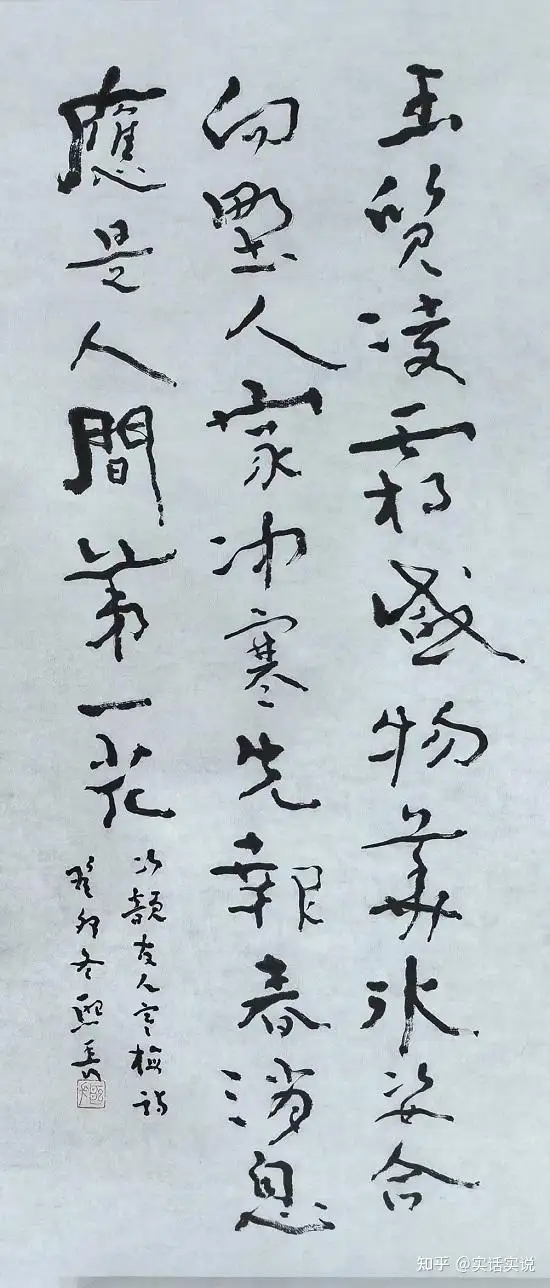 玉質凌霜感物華冰姿合
向墅人家冲寒先報春消息
應是人間第一花
次韻友人梅詩
癸卯冬熙
知乎 @实话实说